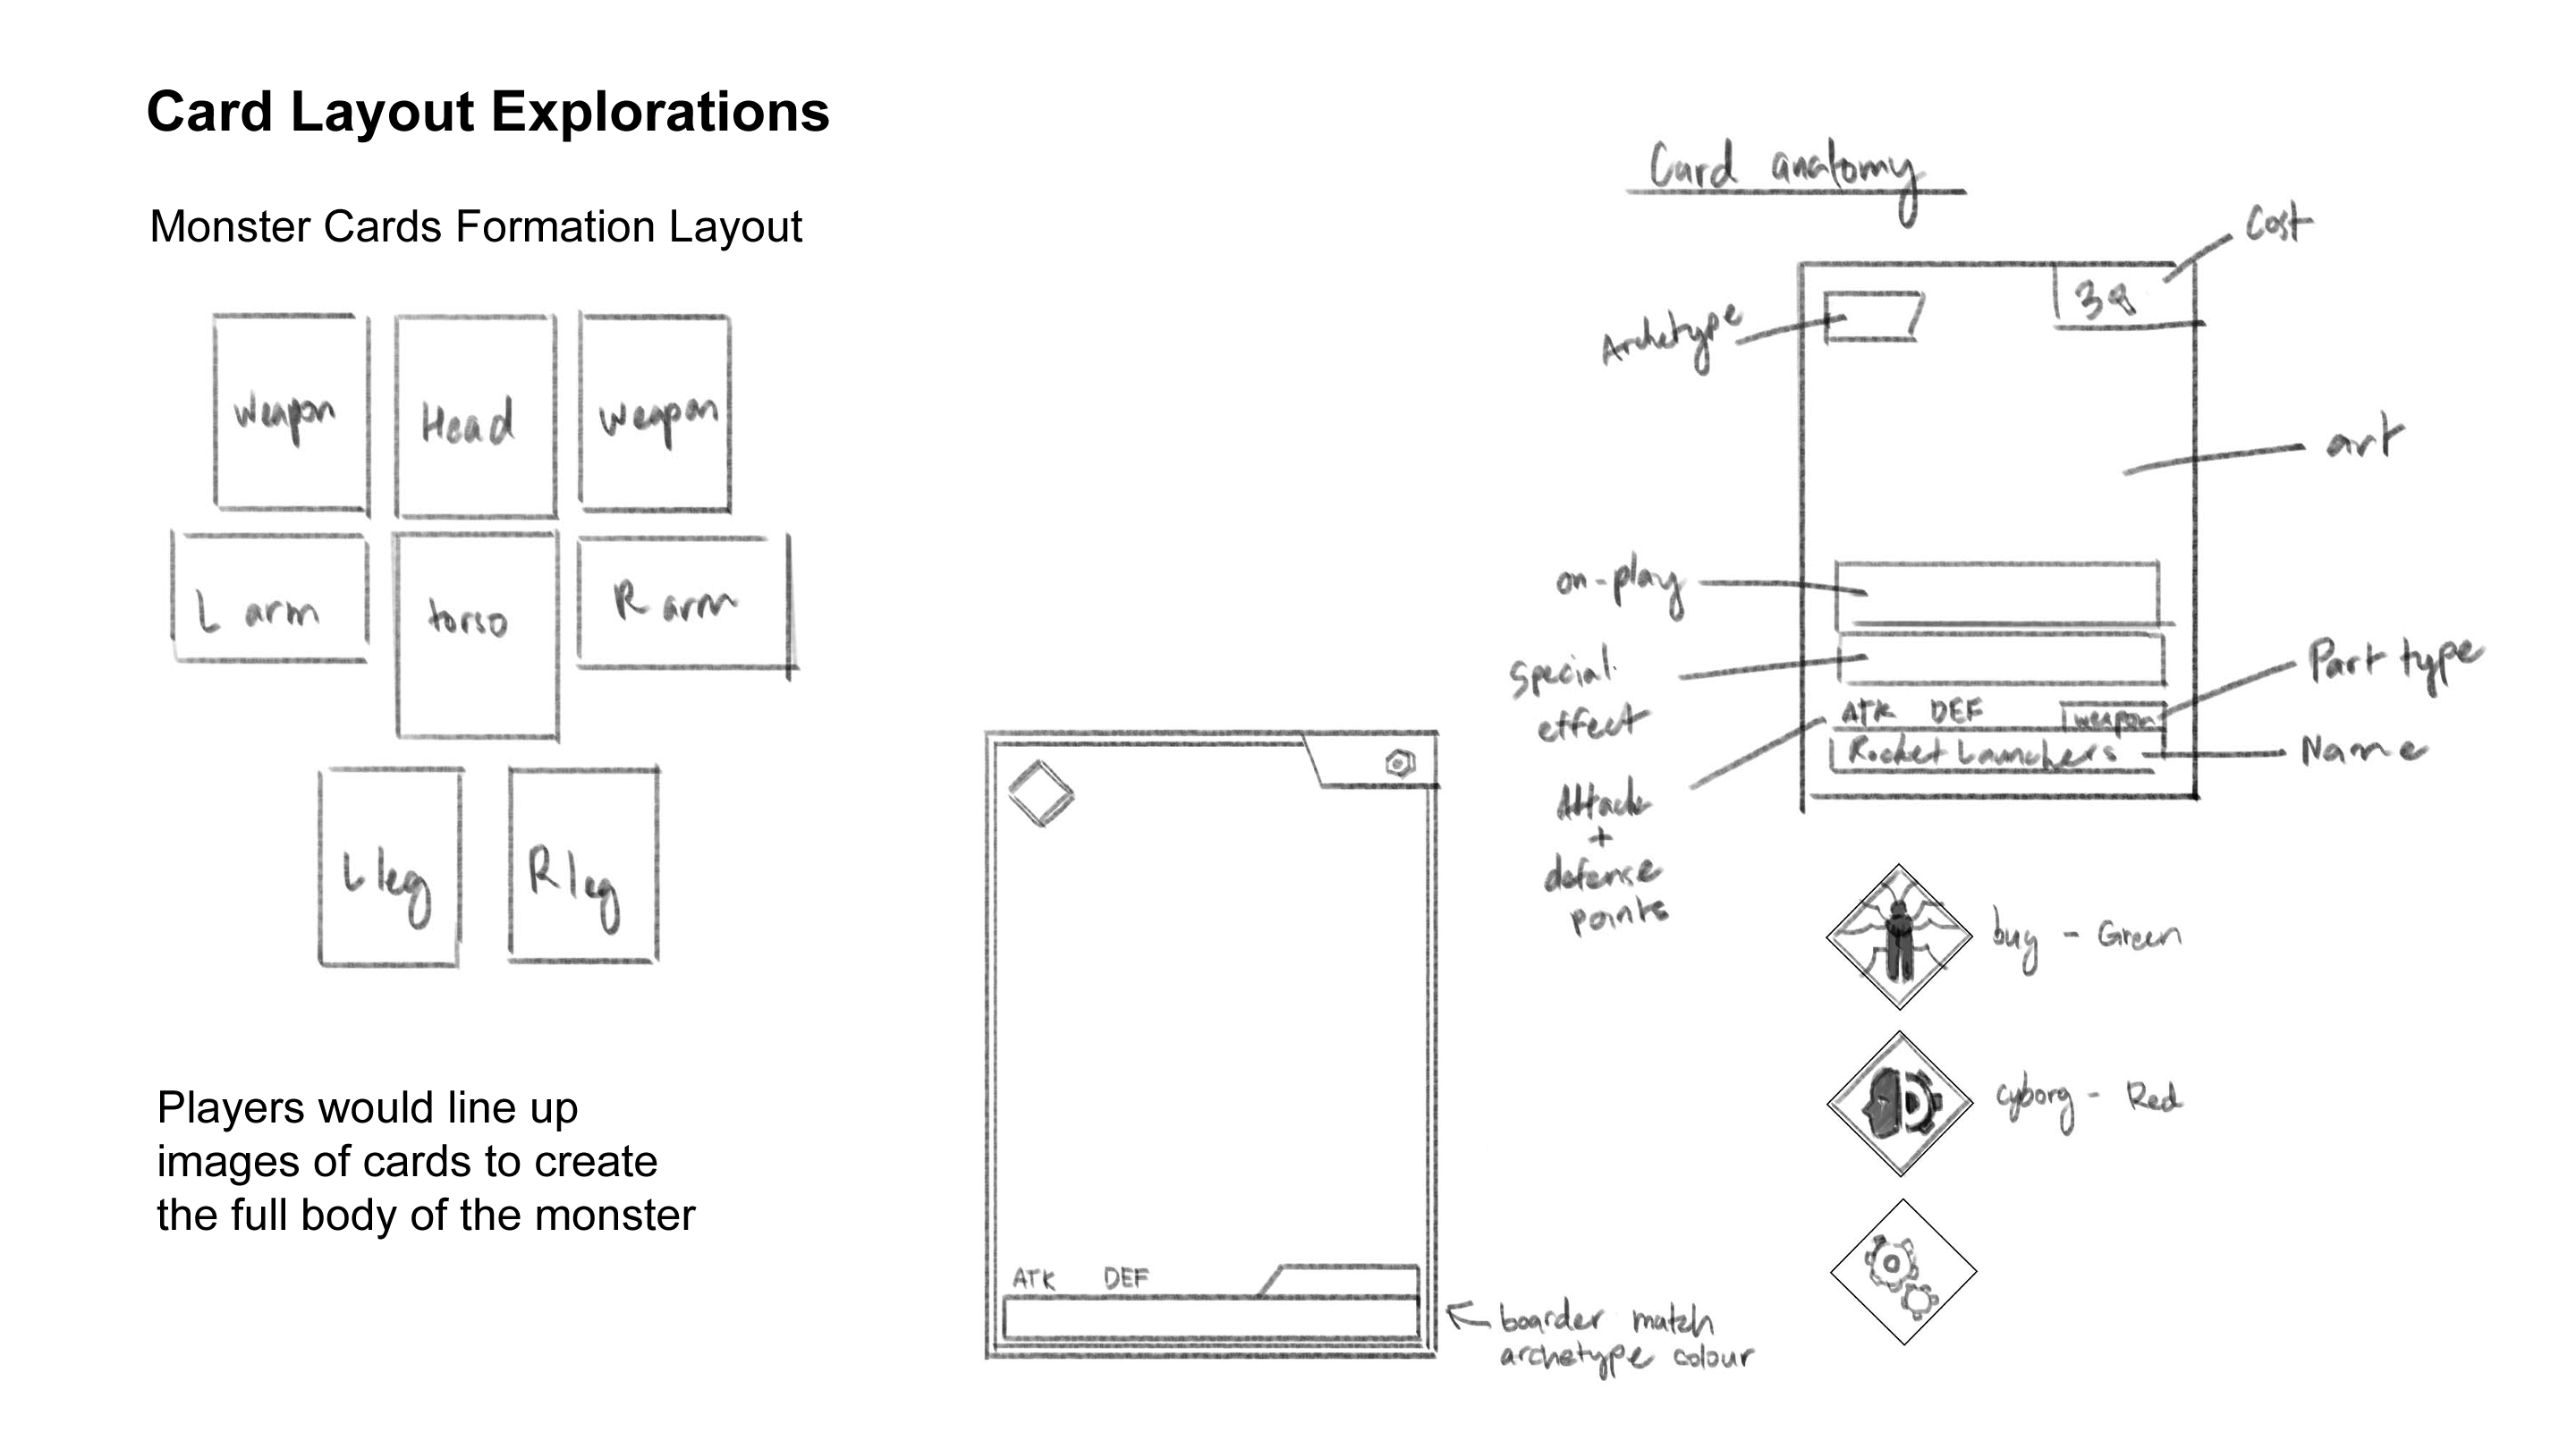 Card Layout Explorations
Monster Cards Formation Layout
Weapon
Head
Weapon
L arm
torso
R arm
L leg
R leg
Players would line up
images of cards to create
the full body of the monster
ATK DEF
boarder match
archetype colour
Card anatomy
Cost
3
Archetype
art
on-play
Special
effect
Part type
ATK DEF
weapon
Rocket Launchers
Name
Attack
+
defense
points
bug - Green
cyborg - Red